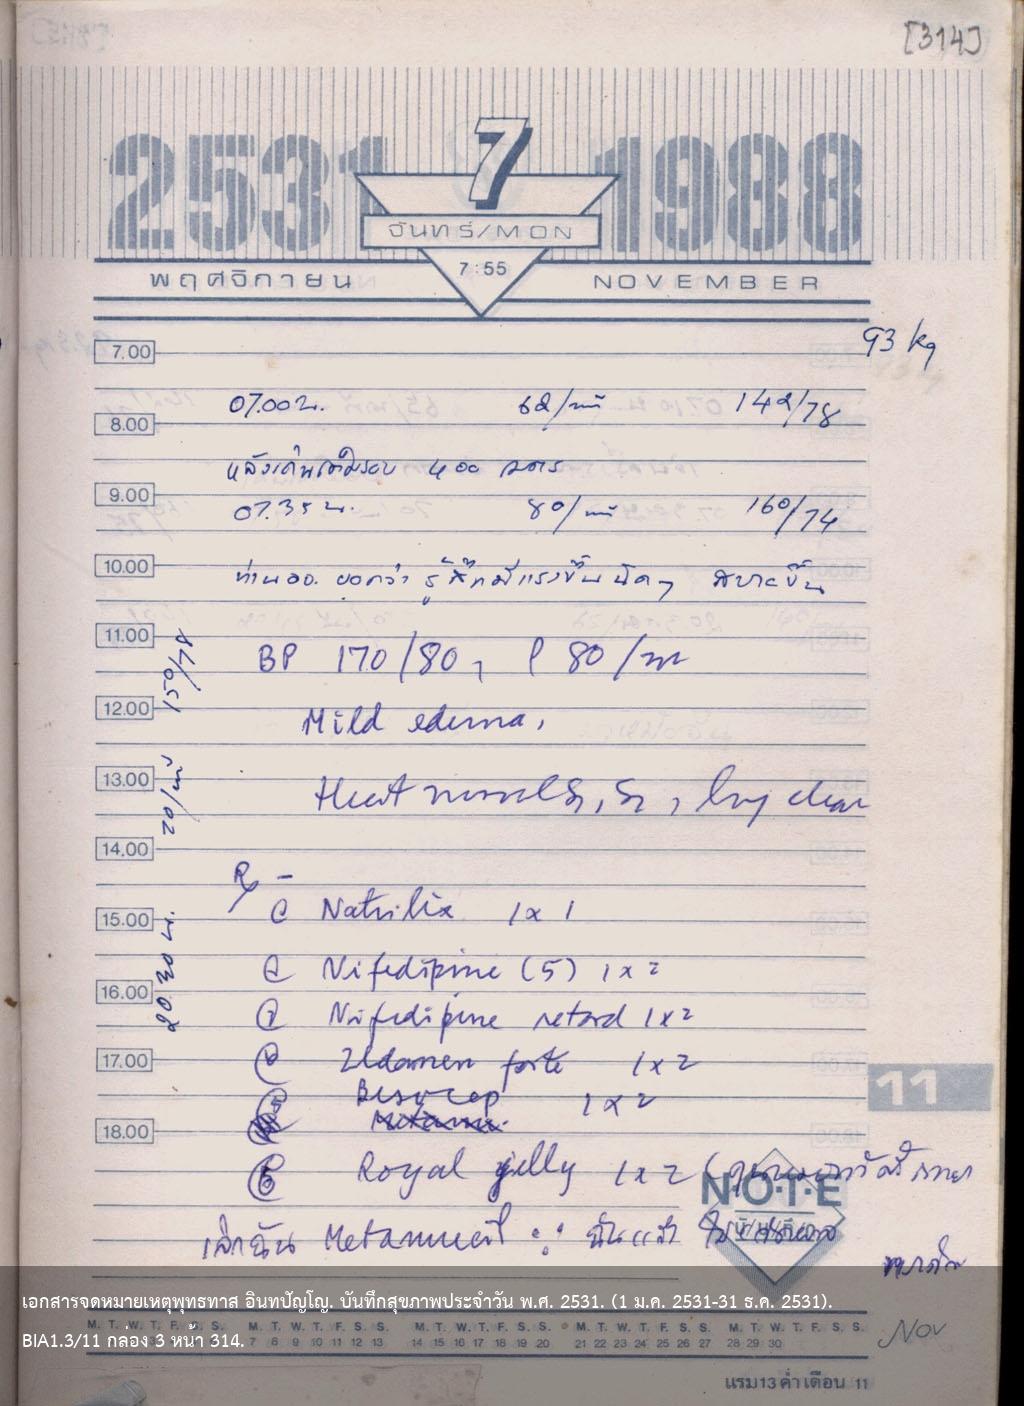 [314]
2531 7 1988
จันทร์/MON
7:55
พฤศจิกายน NOVEMBER
93 kg
7.00
07.00 น. 62/นาที 142/78
8.00
หลังเดินเต็มรอบ 400 เมตร
9.00
07.35 น. 80/นาที 160/74
10.00
ท่านอจ. บอกว่า รู้สึกมีแรงขึ้นนิดๆ สบายขึ้น
11.00
BP 170/80, P 80/min
150/78
12.00
Mild edema,
13.00
Heart normal S1, S2, lung clear
70/นาที
14.00
Rx -
15.00
Natrilix 1x1
20.30 น.
Nifedipine (5) 1x2
16.00
Nifedipine retard 1x2
17.00
Ildamen forte 1x2
1x2
18.00
Royal jelly 1x2
NOTE
เลิกฉัน Metamucil ∵ ฉันแล้ว
11
เอกสารจดหมายเหตุพุทธทาส อินทปัญโญ. บันทึกสุขภาพประจำวัน พ.ศ. 2531. (1 ม.ค. 2531-31 ธ.ค. 2531).
M. T. W. T. F. S. S. M. T. W. T. F. S. S. M. T. W. T. F. S. S. M. T. W. T. F. S. S. M. T. W. T. F. S. S.
BIA1.3/11 กล่อง 3 หน้า 314.
7 8 9 10 11 12 13 14 15 16 17 18 19 20 21 22 23 24 25 26 27 28 29 30
Nov
แรม 13 ค่ำ เดือน 11